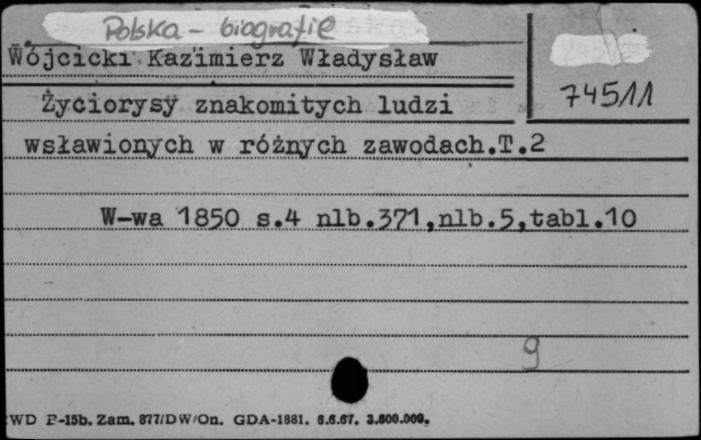 Polska - biografie
Wójcicki Kazimierz Władysław
74511
Życiorysy znakomitych ludzi
wsławionych w różnych zawodach.T.2
W-wa 1850 s.4 nlb.371,nlb.5,tabl.10
9
WD P-15b. Zam. 877/DW/On. GDA-1881. 6.6.67. 3.500.000.